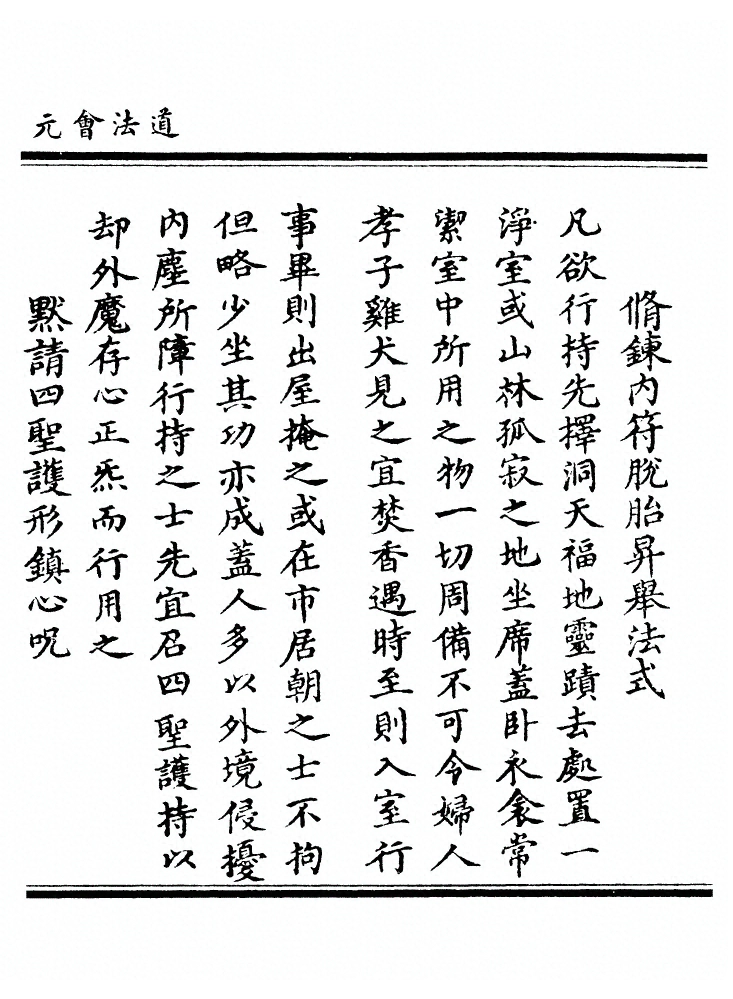 道法會元
脩鍊內符脫胎昇舉法式
凡欲行持先擇洞天福地靈蹟去處置一
淨室或山林孤寂之地坐席蓋卧衣衾常
潔室中所用之物一切周備不可令婦人
孝子雞犬見之宜焚香遇時至則入室行
事畢則出屋掩之或在市居朝之士不拘
但略少坐其功亦成蓋人多以外境侵擾
內塵所障行持之士先宜召四聖護持以
却外魔存心正炁而行用之
默請四聖護形鎮心呪